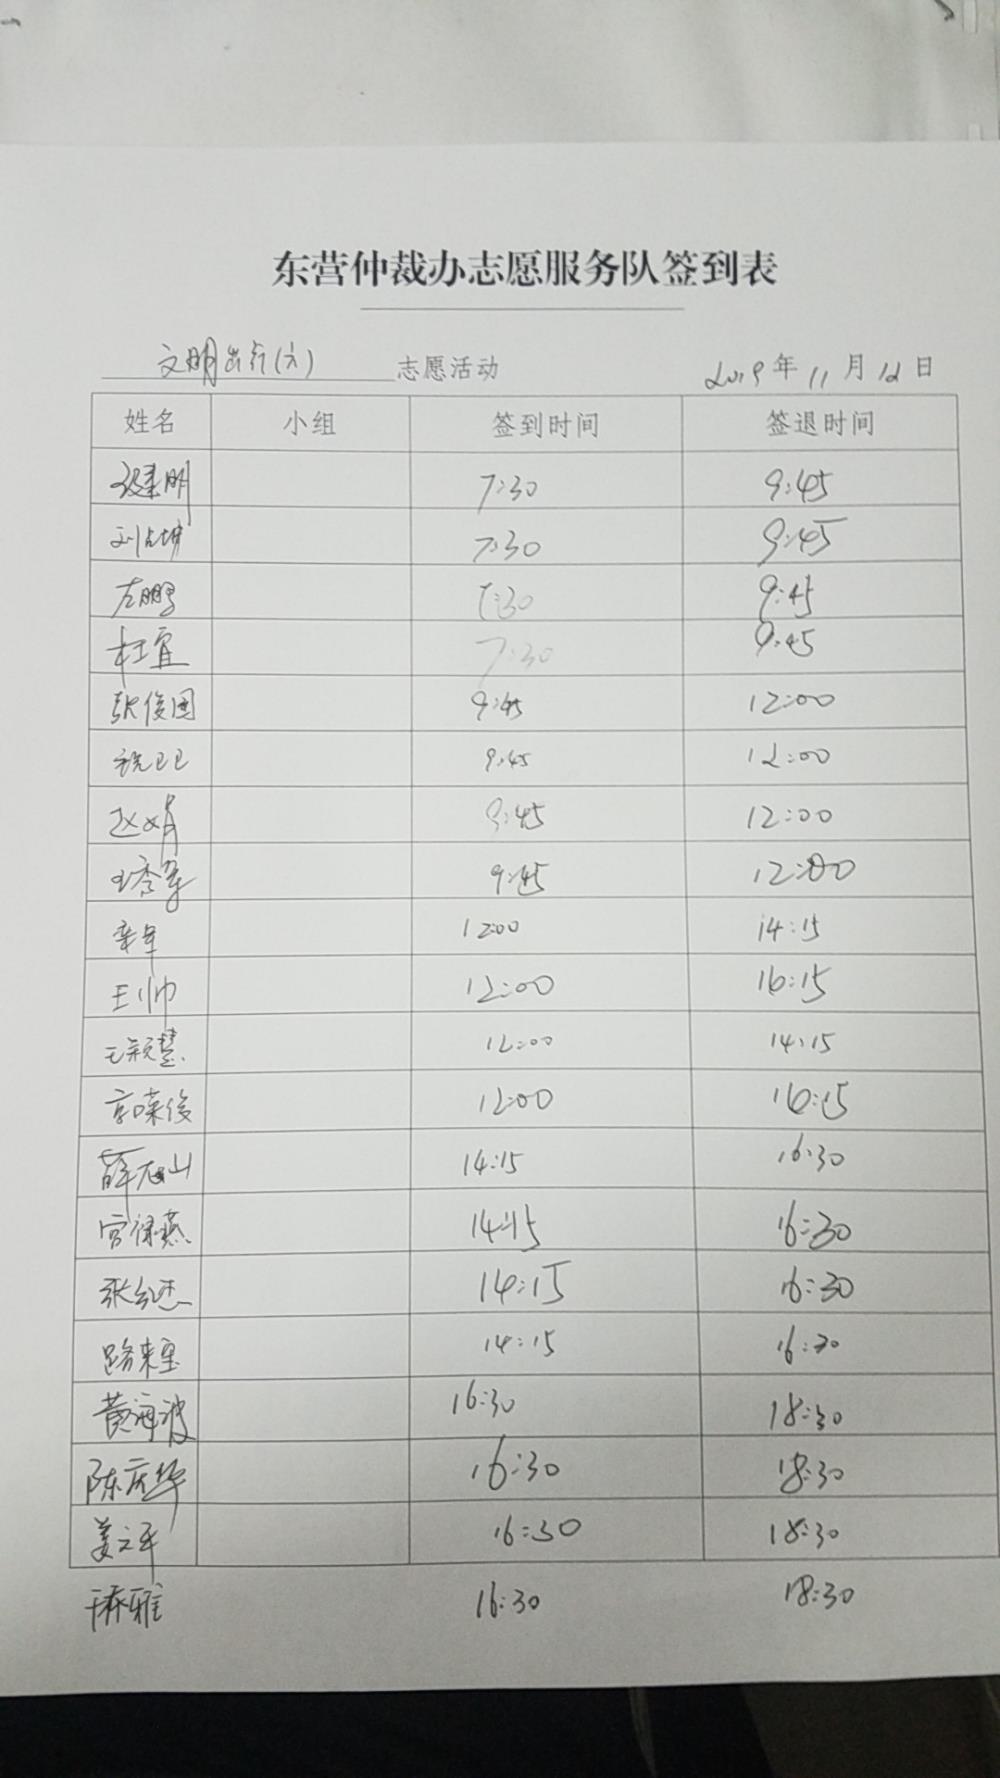 东营仲裁办志愿服务队签到表
文明出行(六) 志愿活动 2019年11月12日
姓名 小组 签到时间 签退时间
7:30 9:45
刘占坤 7:30 9:45
左鹏 7:30 9:45
杜宜 7:30 9:45
张俊国 9:45 12:00
祝巴巴 9:45 12:00
赵娟 9:45 12:00
王秀军 9:45 12:00
12:00 14:15
王帅 12:00 16:15
王颖慧 12:00 14:15
12:00 16:15
薛山 14:15 16:30
宫燕 14:15 16:30
张杰 14:15 16:30
路来 14:15 16:30
黄海波 16:30 18:30
陈庆华 16:30 18:30
姜文平 16:30 18:30
雅 16:30 18:30